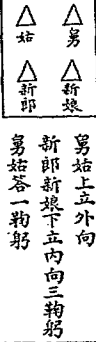 舅　姑
新娘　新郎
舅姑上立外向
新郎新娘下立內向三鞠躬
舅姑答一鞠躬